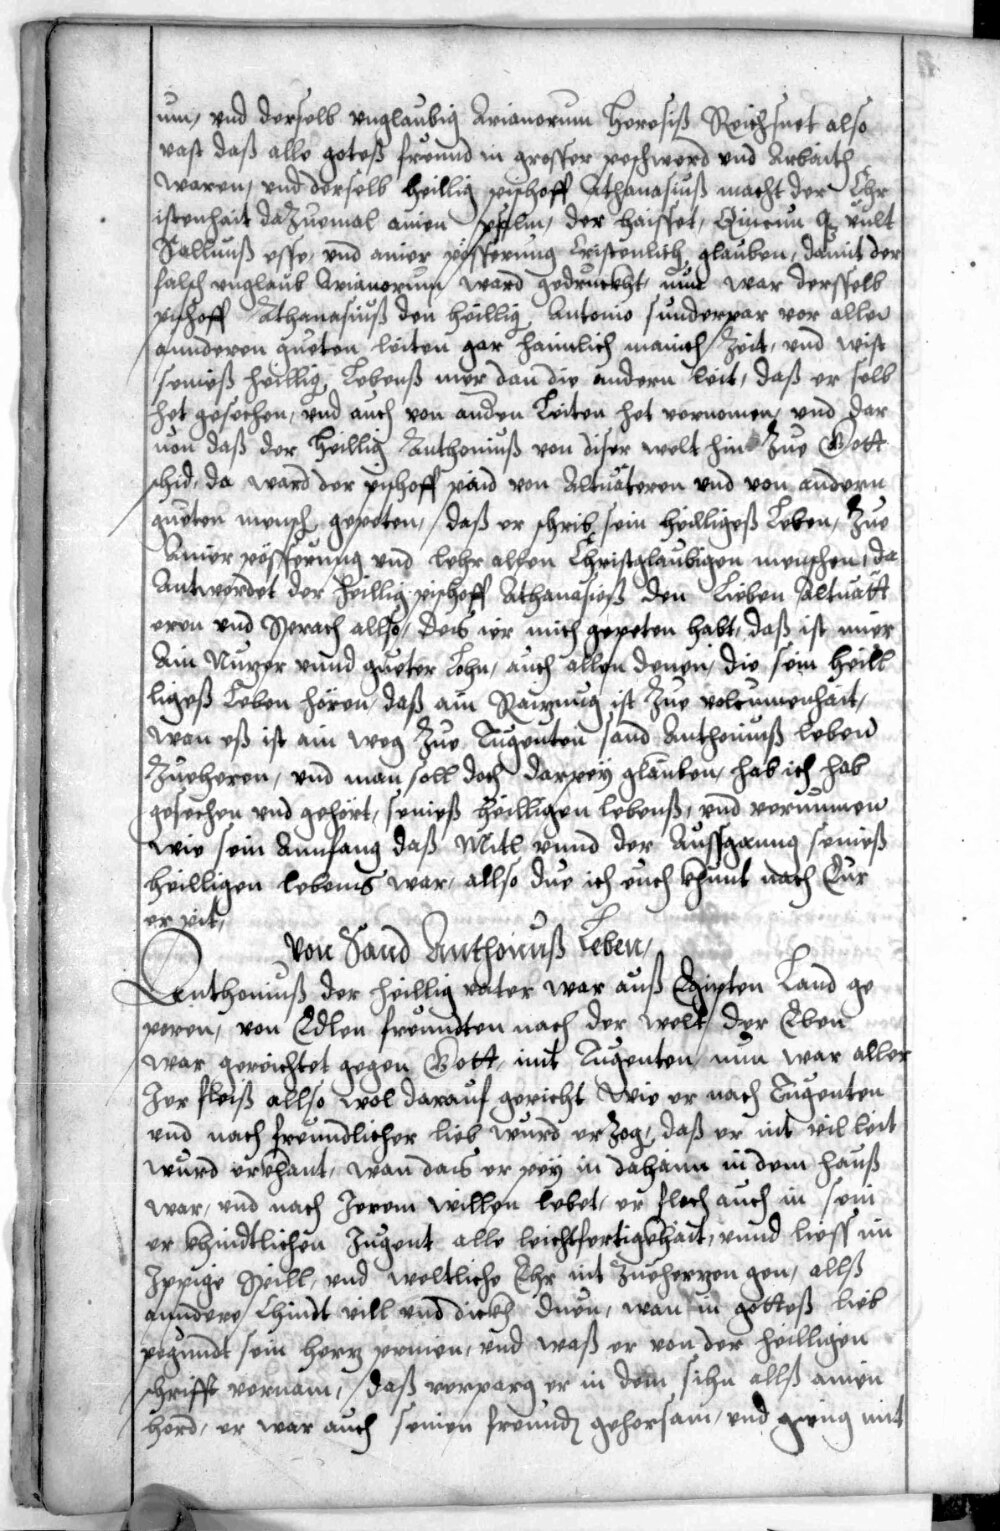 um, vnd derselb vnglaubig Arianorum Heresiß Reichsnet also
vast daß alle goteß freund in grosser peschwerd vnd Arbaith
waren, vnd derselb heillig pischoff Athanasiuß macht der Chr
istenhait dazuemal ainen psalm, der haisset, Quicun q vult
Salluuß esse, vnd ainer pösserung Cristenlich glauben, damit der
falsch vnglaub Arianorum ward gedruckht, nun war dersselb
pischoff Athanasiuß den heillig Antonio sunderpar vor allen
annderen gueten leiten gar haimlich manich Zeit, vnd wist
seineß heillig Lebenß mer dan die andern leit, daß er selb
het gesechen, vnd auch von anden Leiten het vernomen, vnd dar
uon daß der Heillig Anthoniuß von diser welt hin Zue Gott
schid, da ward der pischoff paid von Altuäteren vnd von andern
gueten mensch gepeten, daß er schrib sein heilligeß Leben, Zue
Ainer pösserung vnd lehr allen Christglaubigen menschen, da
Antwordet der heillig pischoff Athanasieß den Lieben Altuätt
eren vnd Sprach allso, des ier mich gepeten habt, daß ist mier
Ain Nuzer vnnd gueter Lohn, auch allen denen, die sein heill
ligeß Leben hören, daß ain Raizung ist Zue volcumenhait,
wan eß ist ain weg Zue Tugenten sand Anthoniuß leben
Zueheren, vnd man soll doch darpey glauben, hab ich hab
gesechen vnd gehört, seineß heilligen lebenß, vnd vernumen
wie sein Annfang daß Mitl vnnd der Aussganng seineß
heilligen lebens war, allso due ich euch khunt nach Eur
er pit,
von Sand Anthoniuß Leben,
Anthoniuß der heillig vater war auß Egipten Land ge
poren, von Edlen freundten nach der welt, der Eben
war gerichtet gegen Gott, mit Tugenten, nun war aller
Jer fleiß allso wol darauf gericht wie er nach Tugenten
vnd nach freundlicher lieb wurd erzog, daß er nit vil leit
wurd erkhant, wan das er pey in dahaim in dem hauß
war, vnd nach Jerem willen lebet, er floch auch in sein
er khindtlichen Jugent alle leichtfertigkhait, vnnd liess im
Jppige Spill, vnd weltliche Ehr nit zueherzen gen, allß
anndere Chindt vill vnd dickh duen, wan in gotteß lieb
pegundt sein herz prinen, vnd waß er von der heilligen
schrifft vernam, daß verparg er in dem sihn allß ainen
hord, er war auch seinen freund gehorsam, vnd gieng mit